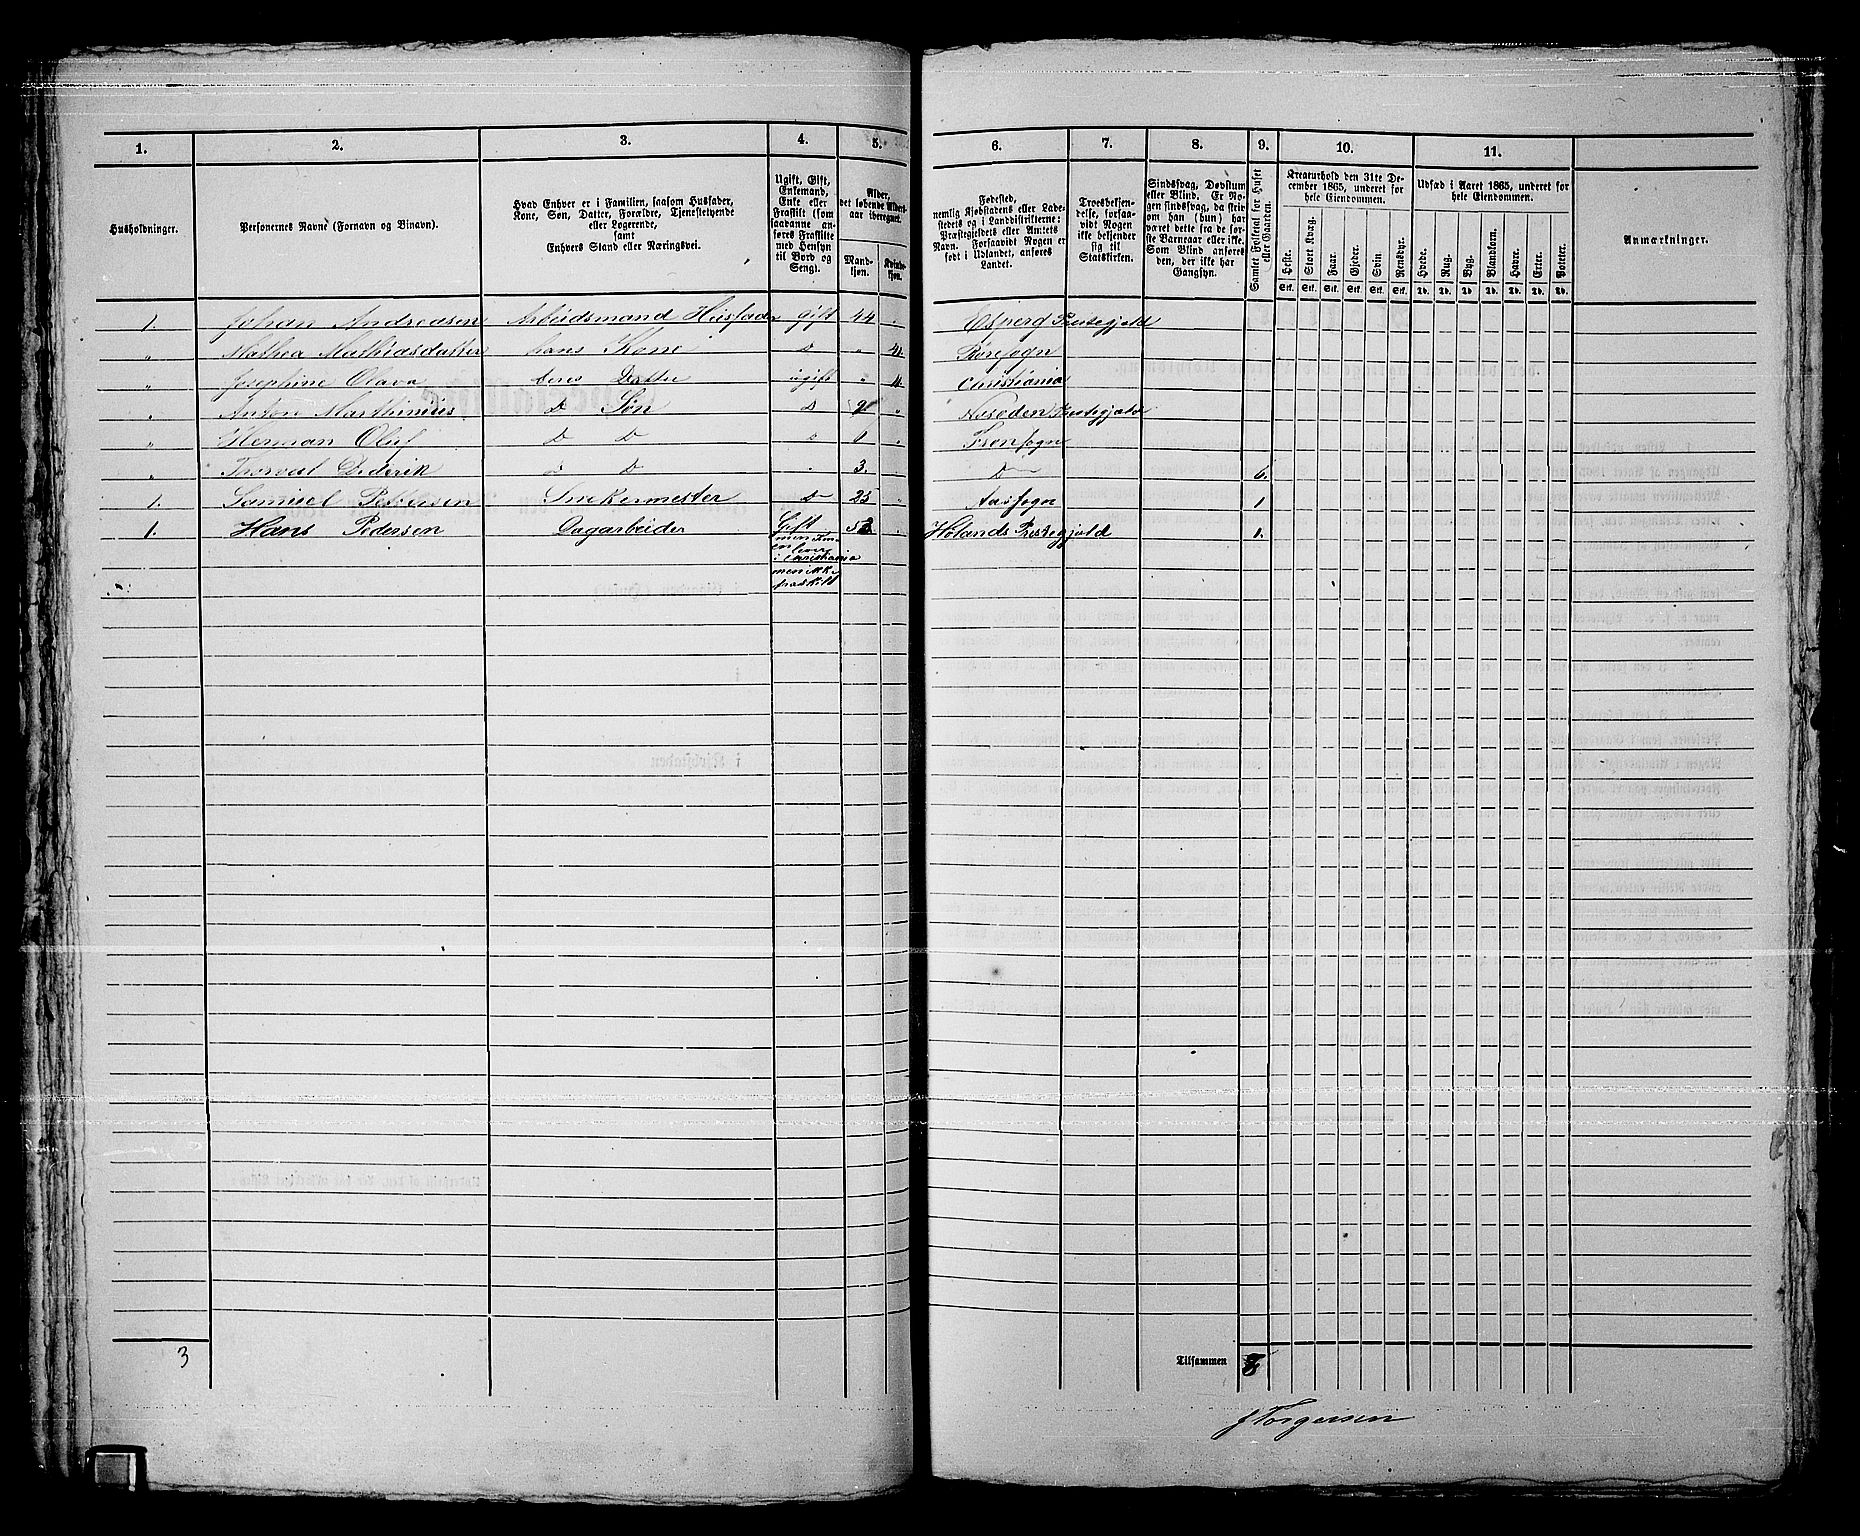 1. 2. 3. 4. 5. 6. 7. 8. 9. 10. 11.
Husholdninger.
Personernes Navne (Fornavn og Binavn).
Hvad Enhver er i Familien, saasom Husfader,
Kone, Søn, Datter, Forældre, Tjenestetyende
eller Logerende,
samt
Enhvers Stand eller Næringsvei.
Ugift, Gift,
Enkemand,
Enke eller
Fraskilt (som
saadanne an-
føres Fraskilte
med Hensyn
til Bord og
Seng).
Alder,
det løbende Alders-
aar iberegnet.
Mand-
kjøn.
Kvinde-
kjøn.
Fødested,
nemlig Kjøbstadens eller Lade-
stedets og i Landdistrikterne:
Præstegjeldets eller Amtets
Navn. Forsaavidt Nogen er
født i Udlandet, anføres
Landet.
Troesbekjen-
delse, forsaa-
vidt Nogen
ikke bekjender
sig til
Statskirken.
Sindssvag, Døvstum
eller Blind. Er No-
gen sindssvag, da skriv
om han (hun) har
været dette fra de før-
ste Barneaar eller ikke.
Som Blind anføres
den, der ikke har
Gangsyn.
Samlet Folketal for Huset
eller Gaarden.
Kreaturhold den 31te De-
cember 1865, underet for
hele Eiendommen.
Heste. Stort Kvæg. Faar. Gjeder. Svin. Rensdyr.
Stk. Stk. Stk. Stk. Stk. Stk.
Udsæd i Aaret 1865, underet for
hele Eiendommen.
Hvede. Rug. Byg. Blandkorn. Havre. Erter. Poteter.
Td. Td. Td. Td. Td. Td. Td.
Anmærkninger.
1. Johan Andreasen Arbeidsmand Husfader gift 44 „ Esperd Prestegjeld
„ Mathea Mathiasdatter hans Kone D „ Børesogn
„ Josephine Olava deres Datter ugift „ Christiania
„ Anton Marthinius D Søn D 9 „ Næseden Prestegjeld
„ Herman Oluf D D D 6 „ Fronsogn
„ Thorval Dederik D D „ 3. D 6.
1. Samuel Pettersen Smikermester D 25 „ Aassogn 1
1. Hans Pedersen Dagarbeider Gift „ Hølands Prestegjeld 1.
men Kon-
en lever
i Christiania
men ikke
fraskilt
3
Tilsammen 8
J Torgersen